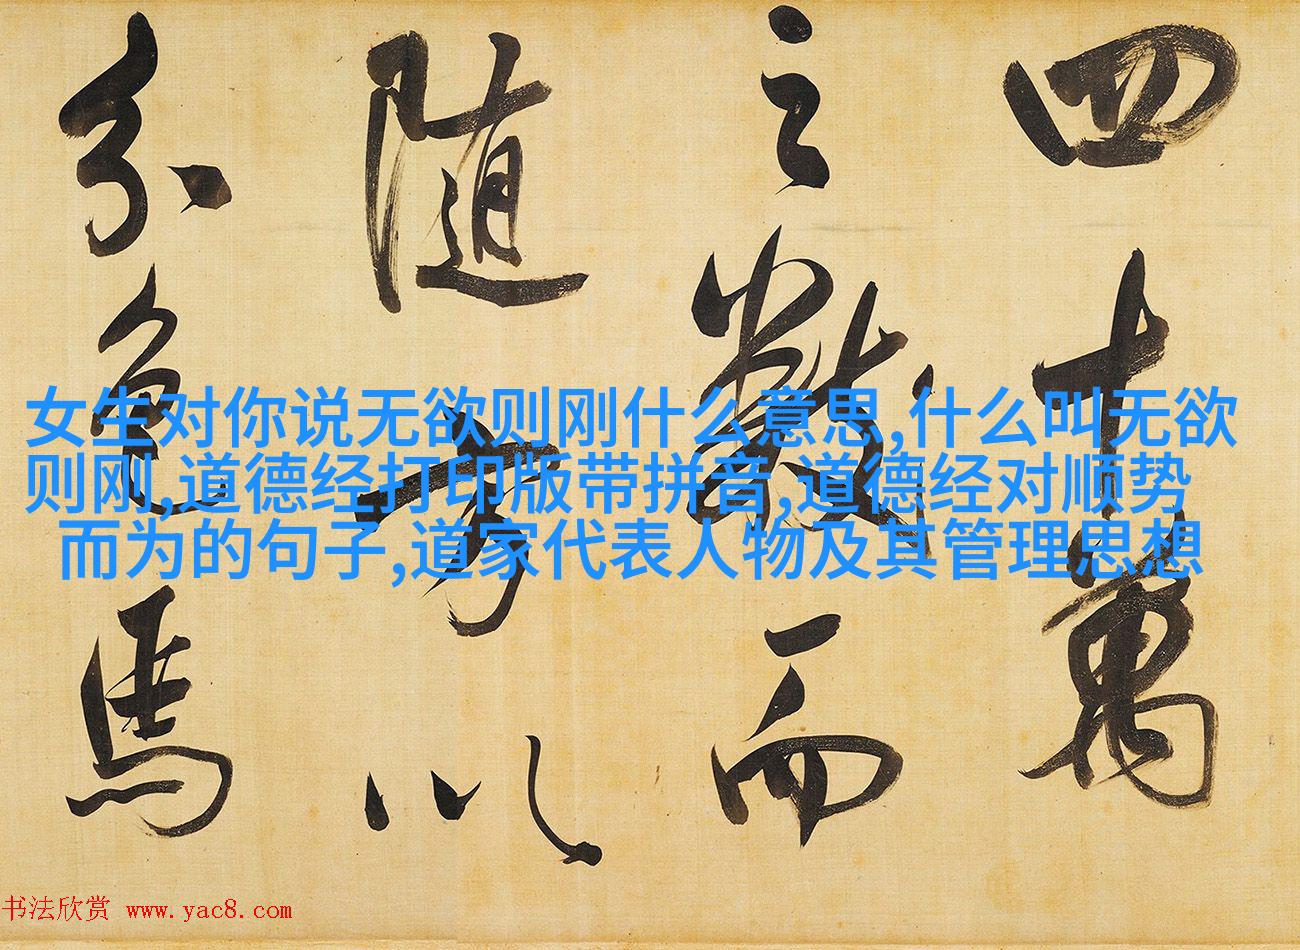 四十万萬
之數而
随方以
分色馬
女生对你说无欲则刚什么意思,什么叫无欲
则刚,道德经打印版带拼音,道德经对顺势
而为的句子,道家代表人物及其管理思想
书法欣赏 www.yac8.com